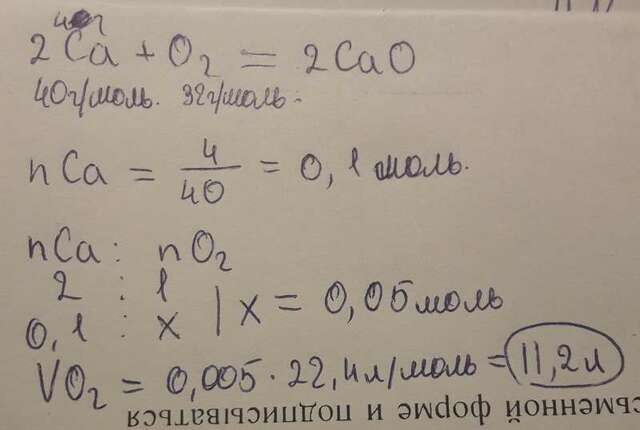 4г
2Ca + O₂ = 2CaO
40г/моль. 32г/моль.
nCa = 4/40 = 0,1 моль.
nCa : nO₂
2 : 1
0,1 : x | x = 0,05 моль
VO₂ = 0,005 · 22,4л/моль = 11,2л
сьменной форме и подписываться